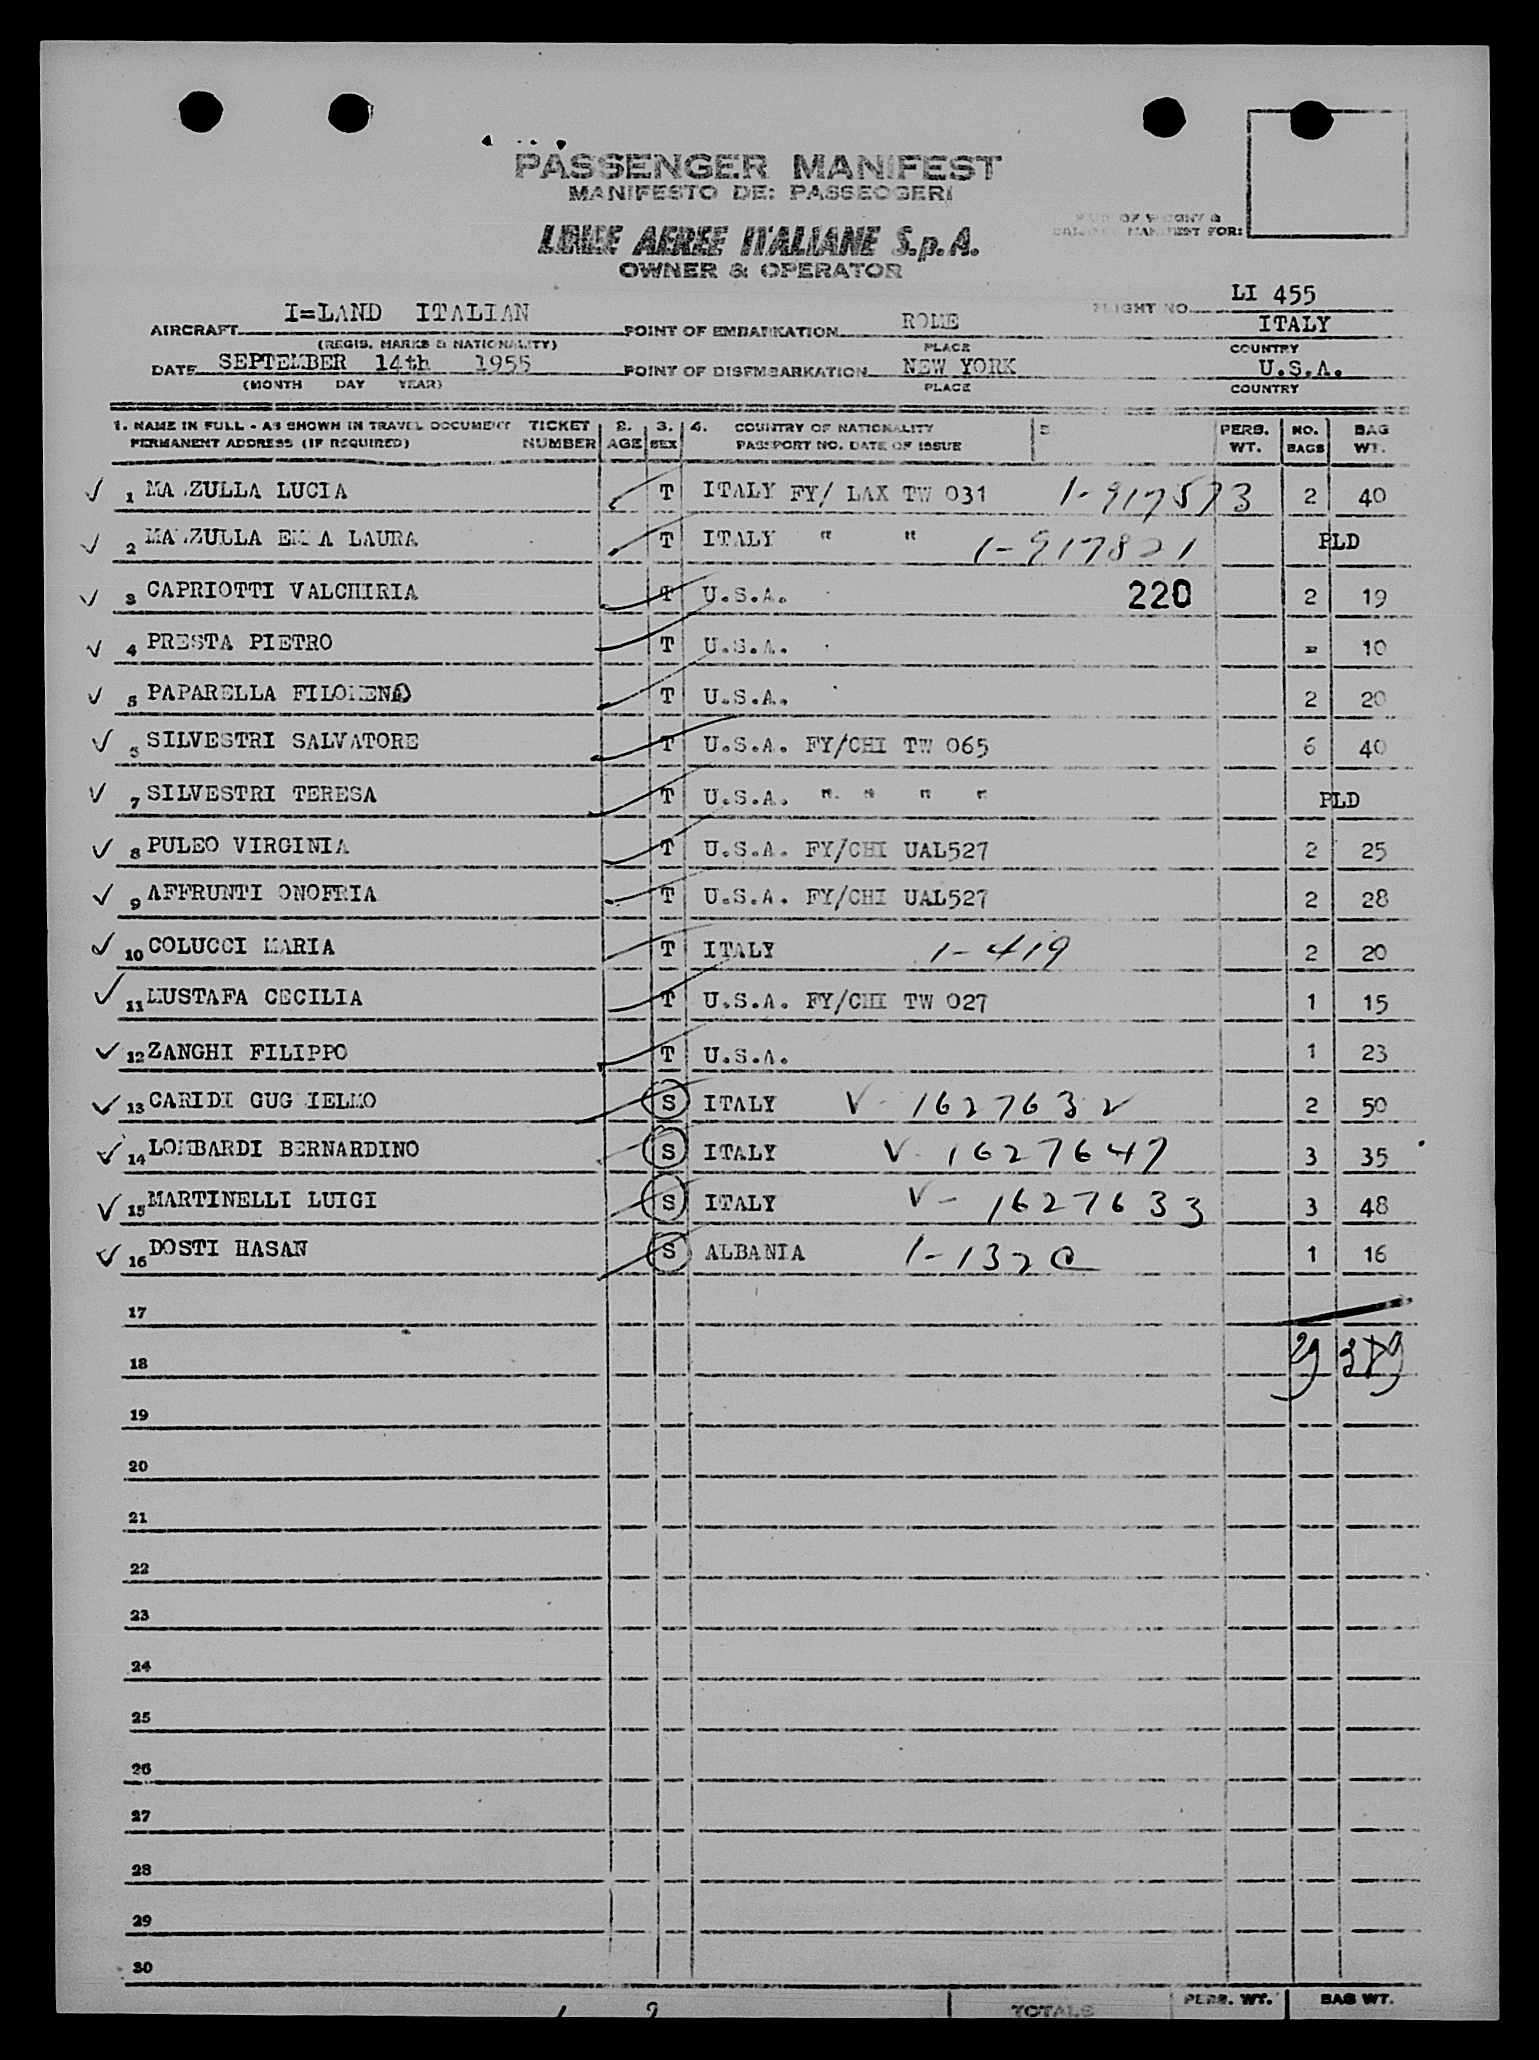 PASSENGER MANIFEST
MANIFESTO DEI PASSEGGERI
LINEE AEREE ITALIANE S.p.A.
OWNER & OPERATOR
MANIFEST FOR:
AIRCRAFT I=LAND ITALIAN POINT OF EMBARKATION ROME FLIGHT NO. LI 455 ITALY
(REGIS. MARKS & NATIONALITY) PLACE COUNTRY
DATE SEPTEMBER 14th 1955 POINT OF DISEMBARKATION NEW YORK U.S.A.
(MONTH DAY YEAR) PLACE COUNTRY
1. NAME IN FULL - AS SHOWN IN TRAVEL DOCUMENT TICKET 2. 3. 4. COUNTRY OF NATIONALITY 5 PERS. NO. BAG
PERMANENT ADDRESS (IF REQUIRED) NUMBER AGE SEX PASSPORT NO. DATE OF ISSUE WT. BAGS WT.
1 MA.ZULLA LUCIA T ITALY FY/ LAX TW 031 1-917573 2 40
2 MA.ZULLA EMMA LAURA T ITALY " " 1-917821 PLD
3 CAPRIOTTI VALCHIRIA T U.S.A. 220 2 19
4 PRESTA PIETRO T U.S.A. = 10
5 PAPARELLA FILOMENA T U.S.A. 2 20
6 SILVESTRI SALVATORE T U.S.A. FY/CHI TW 065 6 40
7 SILVESTRI TERESA T U.S.A. " " " " PLD
8 PULEO VIRGINIA T U.S.A. FY/CHI UAL527 2 25
9 AFFRUNTI ONOFRIA T U.S.A. FY/CHI UAL527 2 28
10 COLUCCI MARIA T ITALY 1-419 2 20
11 MUSTAFA CECILIA T U.S.A. FY/CHI TW 027 1 15
12 ZANGHI FILIPPO T U.S.A. 1 23
13 CARIDI GUGLIELMO S ITALY V-1627632 2 50
14 LOMBARDI BERNARDINO S ITALY V-1627647 3 35
15 MARTINELLI LUIGI S ITALY V-1627633 3 48
16 DOSTI HASAN S ALBANIA 1-132 1 16
17
18 29
19
20
21
22
23
24
25
26
27
28
29
30
TOTALS PERS. WT. BAG WT.